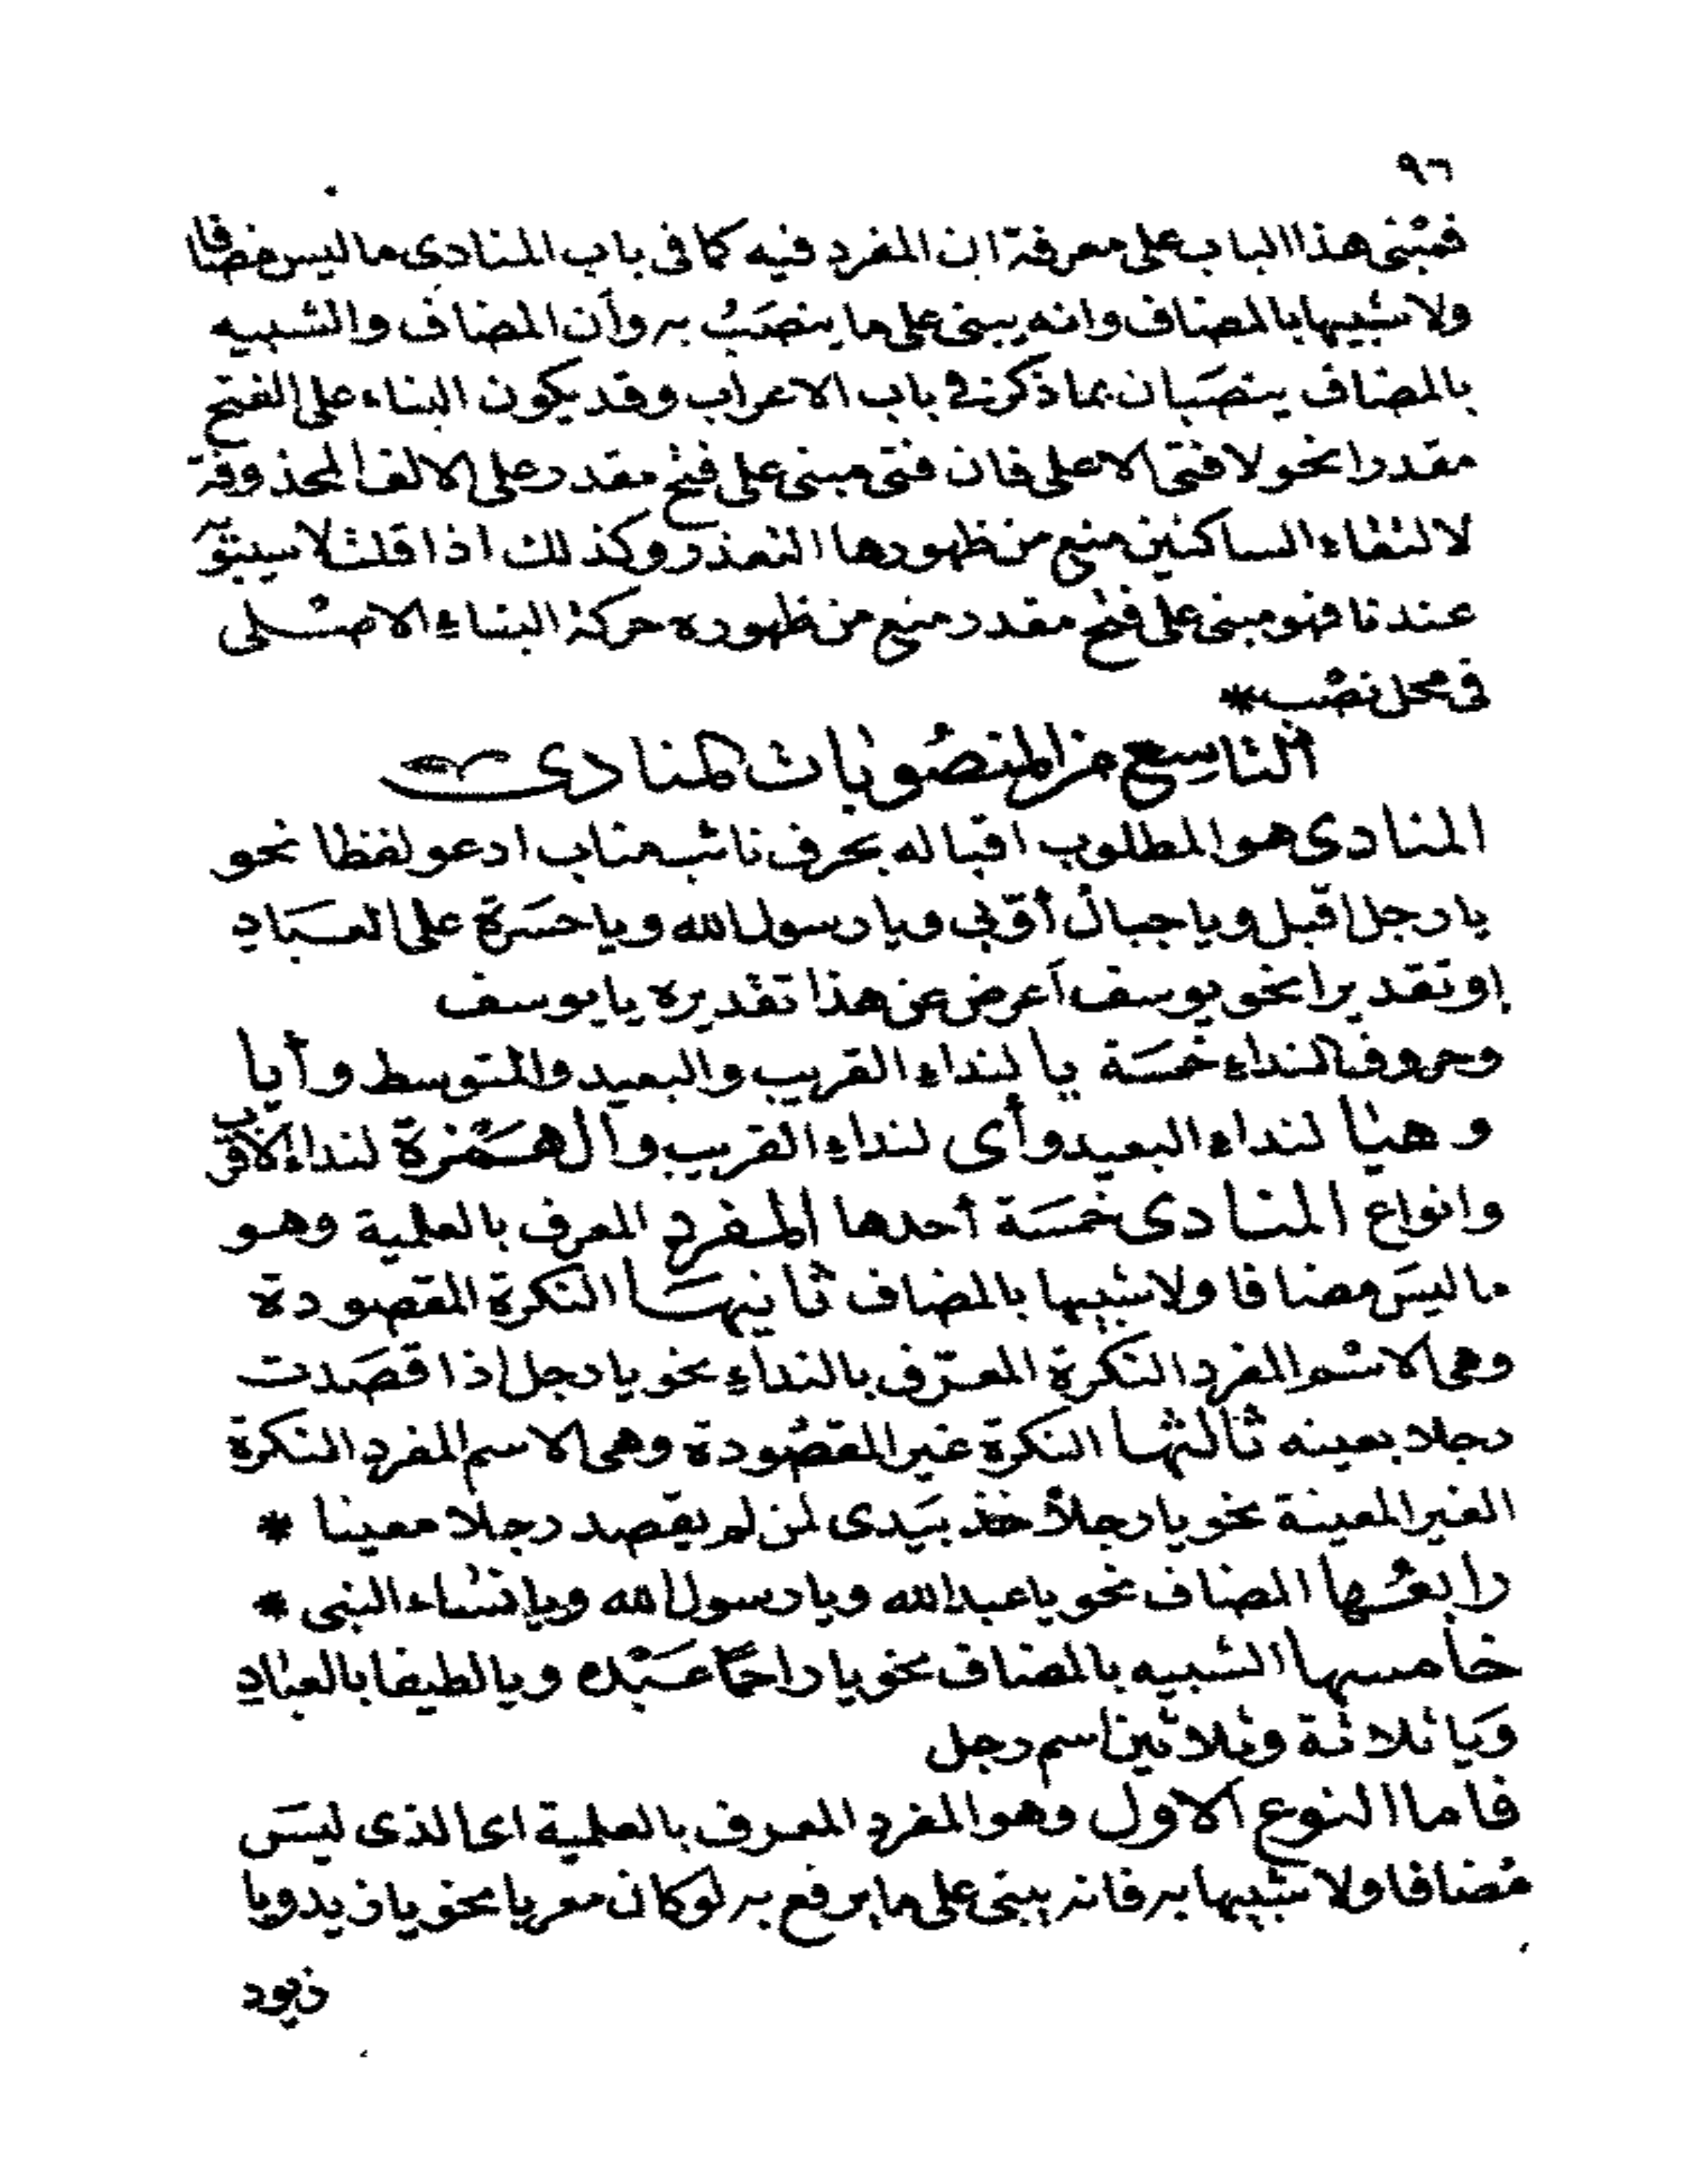 ٩٦
فمبنى هذا الباب على معرفة ان المفرد فيه كما فى باب المنادى ما ليس مضافا
ولا شبيها بالمضاف وانه يبنى على ما ينصَبُ به وأن المضاف والشبيه
بالمضاف ينصَبان بما ذكر فى باب الاعراب وقد يكون البناء على الفتح
مقدرا نحو لا فتى الا على فان فتى مبنى على فتح مقدر على الالف المحذوفة
لالتقاء الساكنين منع من ظهورها التعذر وكذلك اذا قلت لا سيبويه
عندنا فهو مبنى على فتح مقدر منع من ظهوره حركة البناء الاصلى
فى محل نصب *
التاسع من المنصوبات المنادى
المنادى هو المطلوب اقباله بحرف نائب مناب ادعو لفظا نحو
يا رجل اقبل ويا جبال أوّبى ويا رسول الله ويا حسَرة على العبَادِ
او تقديرا نحو يوسف أعرض عن هذا تقديره يا يوسف
وحروف النداء خمسَة يا لنداء القريب والبعيد والمتوسط وأيا
وهيا لنداء البعيد وأى لنداء القريب والهمزة لنداء الاقرب
وانواع المنادى خمسَة أحدها المفرد المعرف بالعلمية وهو
ما ليسَ مضافا ولا شبيها بالمضاف ثانيها النكرة المقصودة
وهى الاسم المفرد النكرة المعرّف بالنداءِ نحو يا رجل اذا قصَدت
رجلا بعينه ثالثها النكرة غير المقصُودة وهى الاسم المفرد النكرة
الغير المعينة نحو يا رجلاً خذ بيَدى لمن لم يقصد رجلا معينا *
رابعُها المضاف نحو يا عبد الله ويا رسول الله ويا نساء النبى *
خامسها الشبيه بالمضاف نحو يا راحمًا عبَده ويا لطيفا بالعبادِ
وَيا ثلاثة وثلاثين اسم رجل
فاما النوع الاول وهو المفرد المعرف بالعلمية اى الذى ليسَ
مُضافا ولا شبيها به فانه يبنى على ما يرفع به لو كان معربا نحو يا زيد ويا
زيود